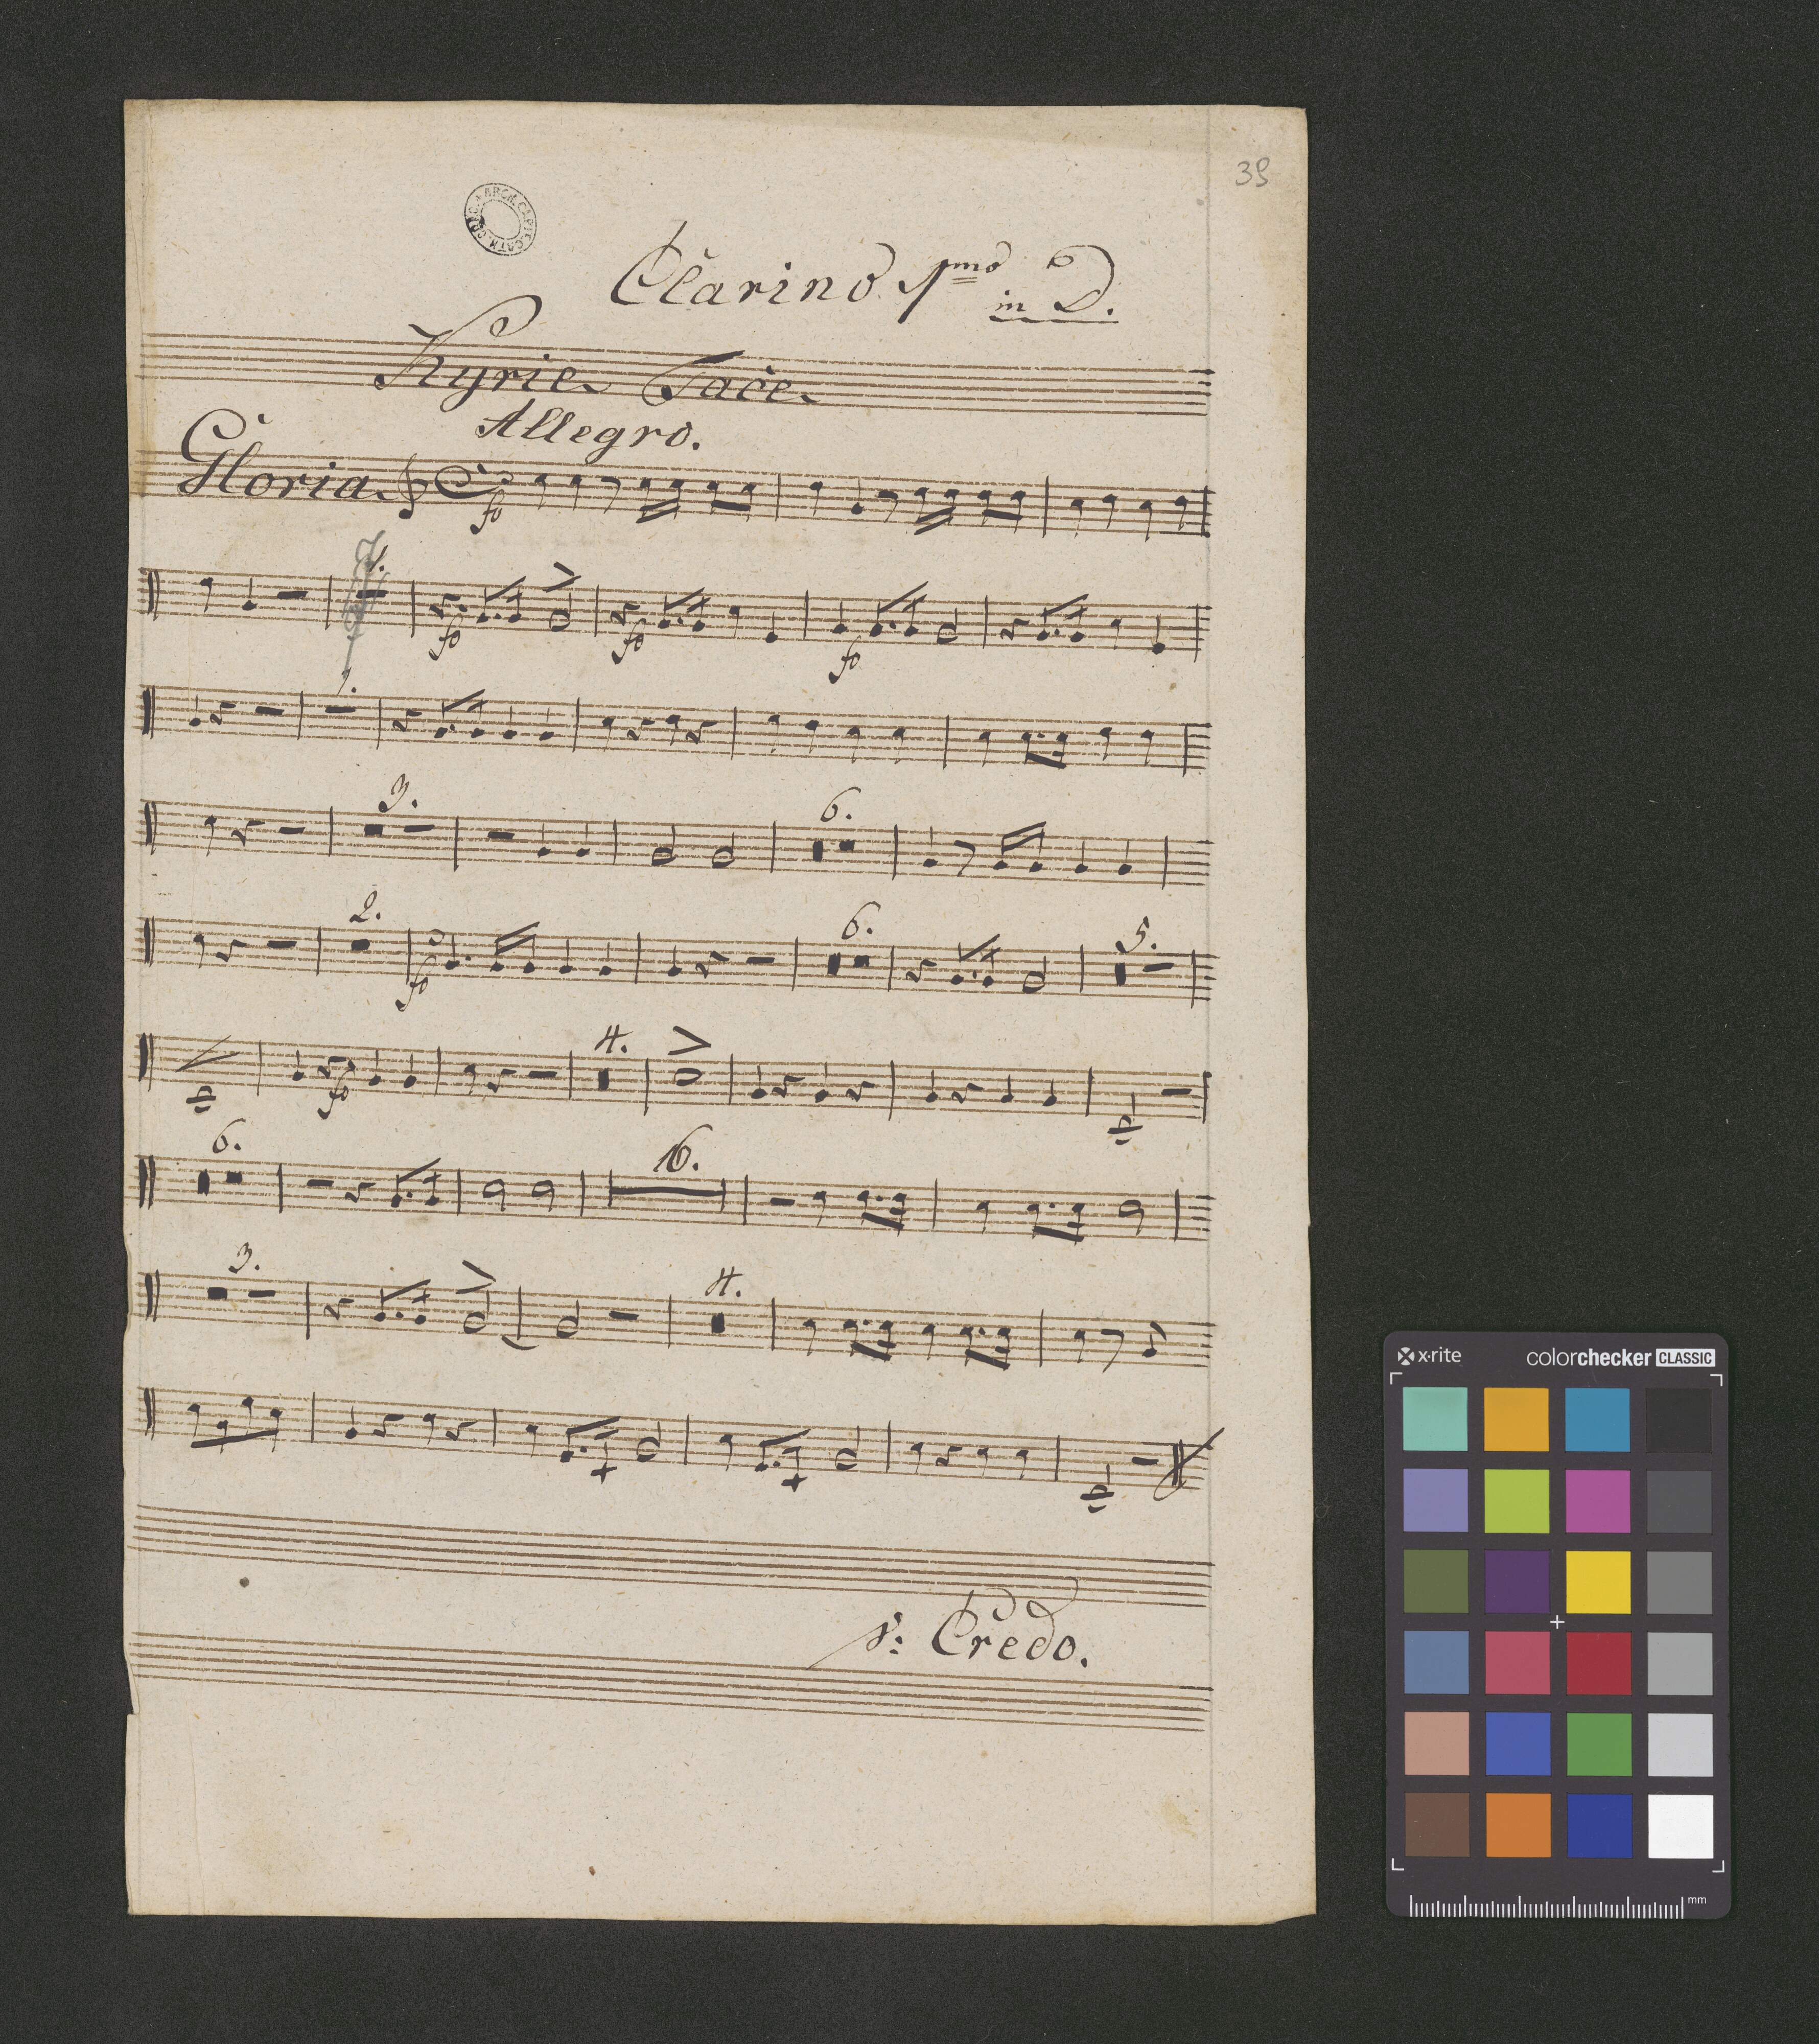 39
Clarino 1mo in D.
Kyrie Tace
Allegro.
Gloria
fo
1.
fo fo fo
1.
3. 6.
2. 6. 5.
fo
4.
fo
6. 16.
3. 4.
s: Credo.
x·rite colorchecker CLASSIC
mm